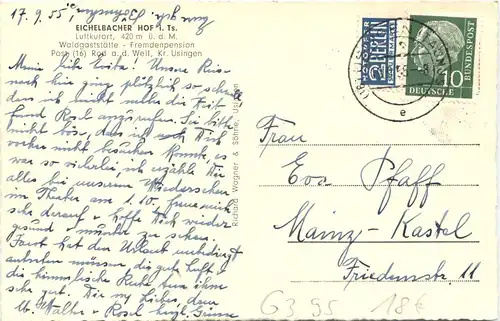 17.9.55,
EICHELBACHER HOF i. Ts.
Luftkurort, 420 m ü. d. M.
Waldgaststätte - Fremdenpension
Post (16) Rod a. d. Weil, Kr. Usingen
Meine liebe Evita! Unsere Reise
nach hier ging plötzlich so schnell,
daß ich nicht mehr die Zeit
fand Rosel anzurufen. Sei bitte
nicht böse, daß ich auch Dich
vorher nicht besuchen konnte, es
war so ich erzähle Dir
alles bei unserem Wiedersehen
im Theater am 1.10. freue mich
sehr darauf u. hoffe Dich wieder
gesund u. munter zu sehen.
hat den Urlaub unbedingt
antreten müssen, die gute Luft u.
die himmlische Ruhe tun ihm
sehr gut. Dir, my Liebes, dem
Ub. Walter u. Rosel herzl. Grüsse
Richard Wagner & Söhne, Usingen
NOTOPFER
2 BERLIN
STEUERMARKE
10
DEUTSCHE
BUNDESPOST
e
Frau
Eva Pfaff
Mainz-Kastel
Friedenstr. 11
G395 18€